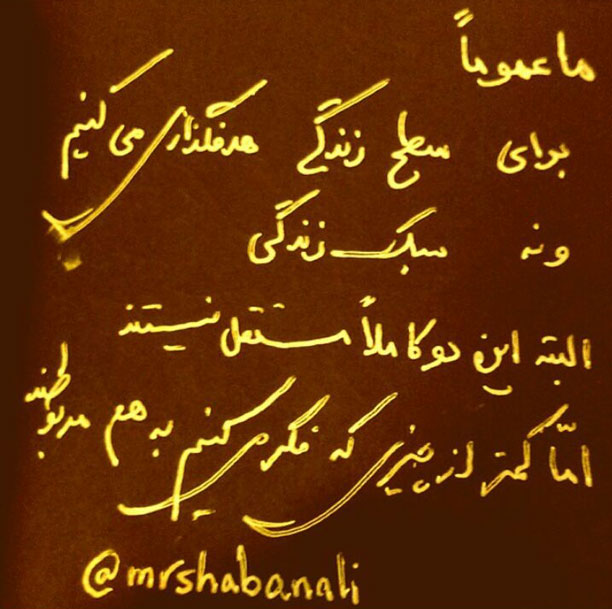 ما عموماً
برای سطح زندگی هدفگذاری می کنیم
و نه سبک زندگی
البته این دو کاملاً مستقل نیستند
امّا کمتر از چیزی که فکر می کنیم به هم مربوطند
@mrshabanali